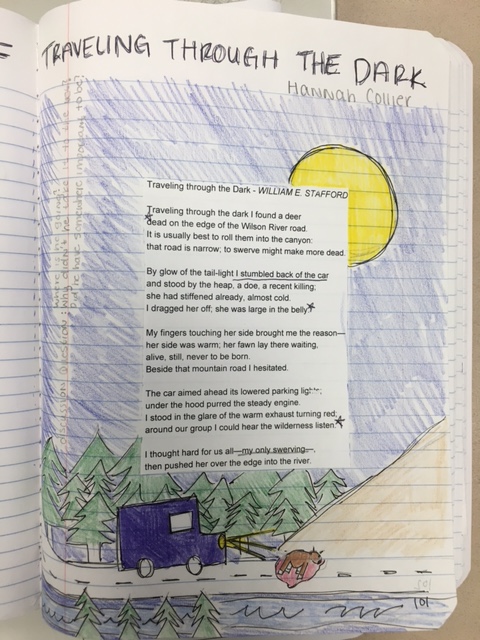 TRAVELING THROUGH THE DARK
Hannah Collier
Traveling through the Dark - WILLIAM E. STAFFORD
Traveling through the dark I found a deer
dead on the edge of the Wilson River road.
It is usually best to roll them into the canyon:
that road is narrow; to swerve might make more dead.
By glow of the tail-light I stumbled back of the car
and stood by the heap, a doe, a recent killing;
she had stiffened already, almost cold.
I dragged her off; she was large in the belly.
My fingers touching her side brought me the reason—
her side was warm; her fawn lay there waiting,
alive, still, never to be born.
Beside that mountain road I hesitated.
The car aimed ahead its lowered parking lights;
under the hood purred the steady engine.
I stood in the glare of the warm exhaust turning red;
around our group I could hear the wilderness listen.
I thought hard for us all—my only swerving—,
then pushed her over the edge into the river.
101